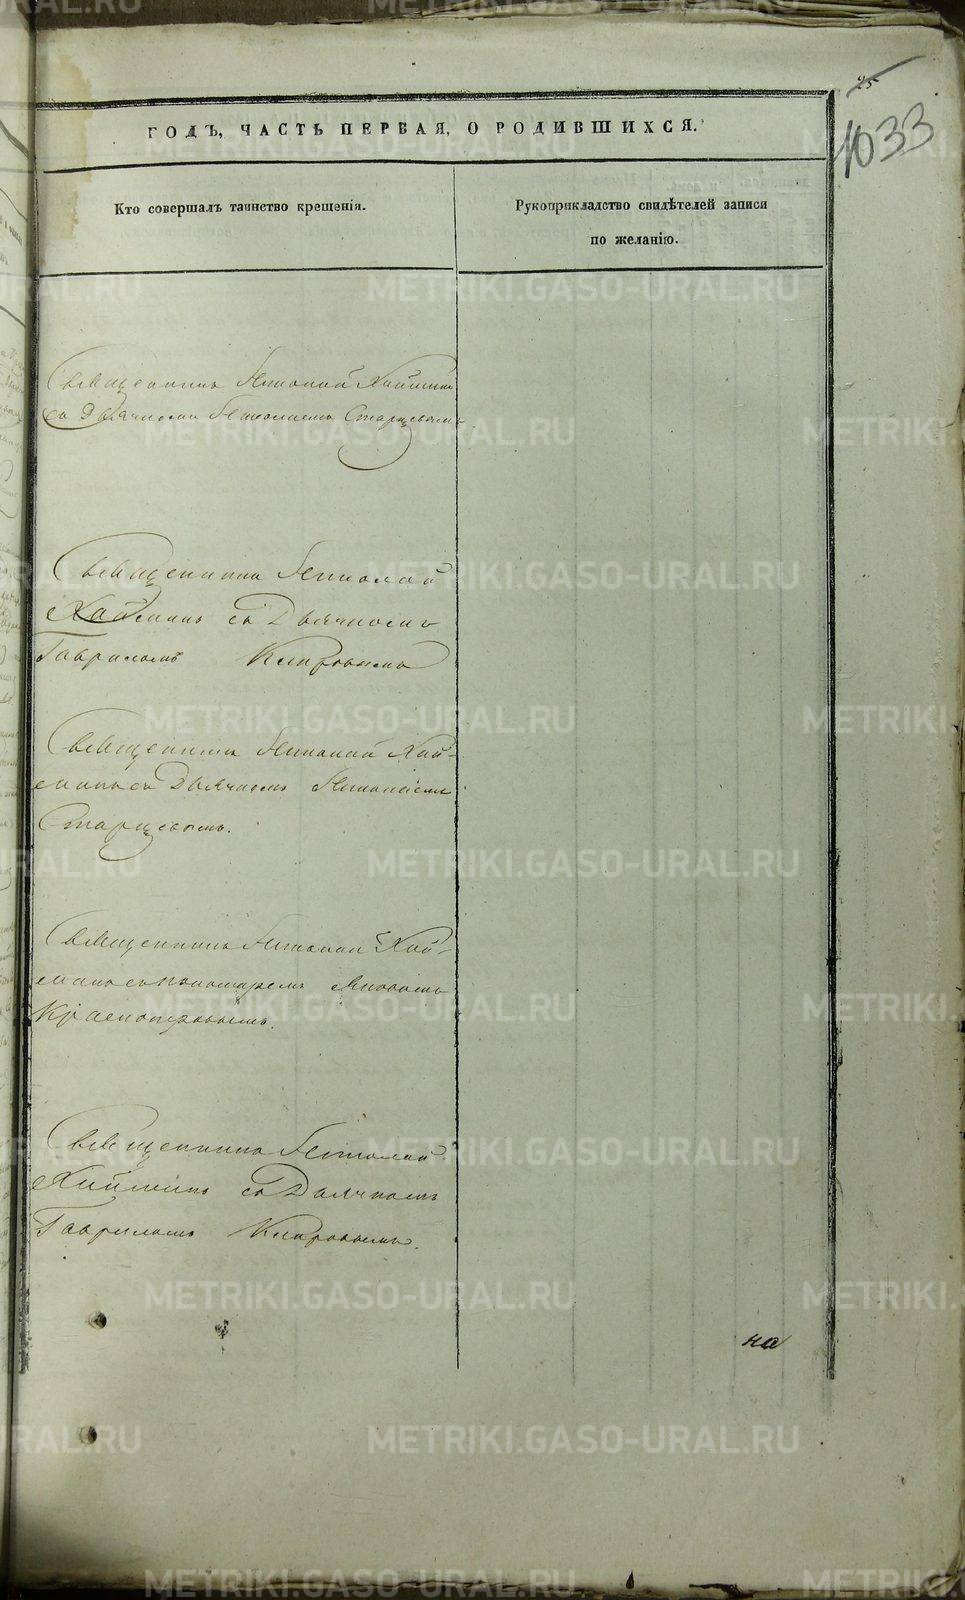 25
1033
ГОДЪ, ЧАСТЬ ПЕРВАЯ, О РОДИВШИХСЯ.
Кто совершалъ таинство крещенія.
Рукоприкладство свидѣтелей записи
по желанію.
Священникъ Николай Хаймин
съ Дьячкомъ Николаемъ Старцевымъ
Священникъ Николай
Хайминъ съ Дьячкомъ
Гавриломъ
Священникъ Николай Хай-
минъ съ Дьячкомъ Николаемъ
Старцевымъ.
Священникъ Николай Хай-
минъ съ Пономаремъ
Краснопѣровымъ.
Священникъ Николай
Хайминъ съ Дьячкомъ
Гавриломъ
на
METRIKI.GASO-URAL.RU